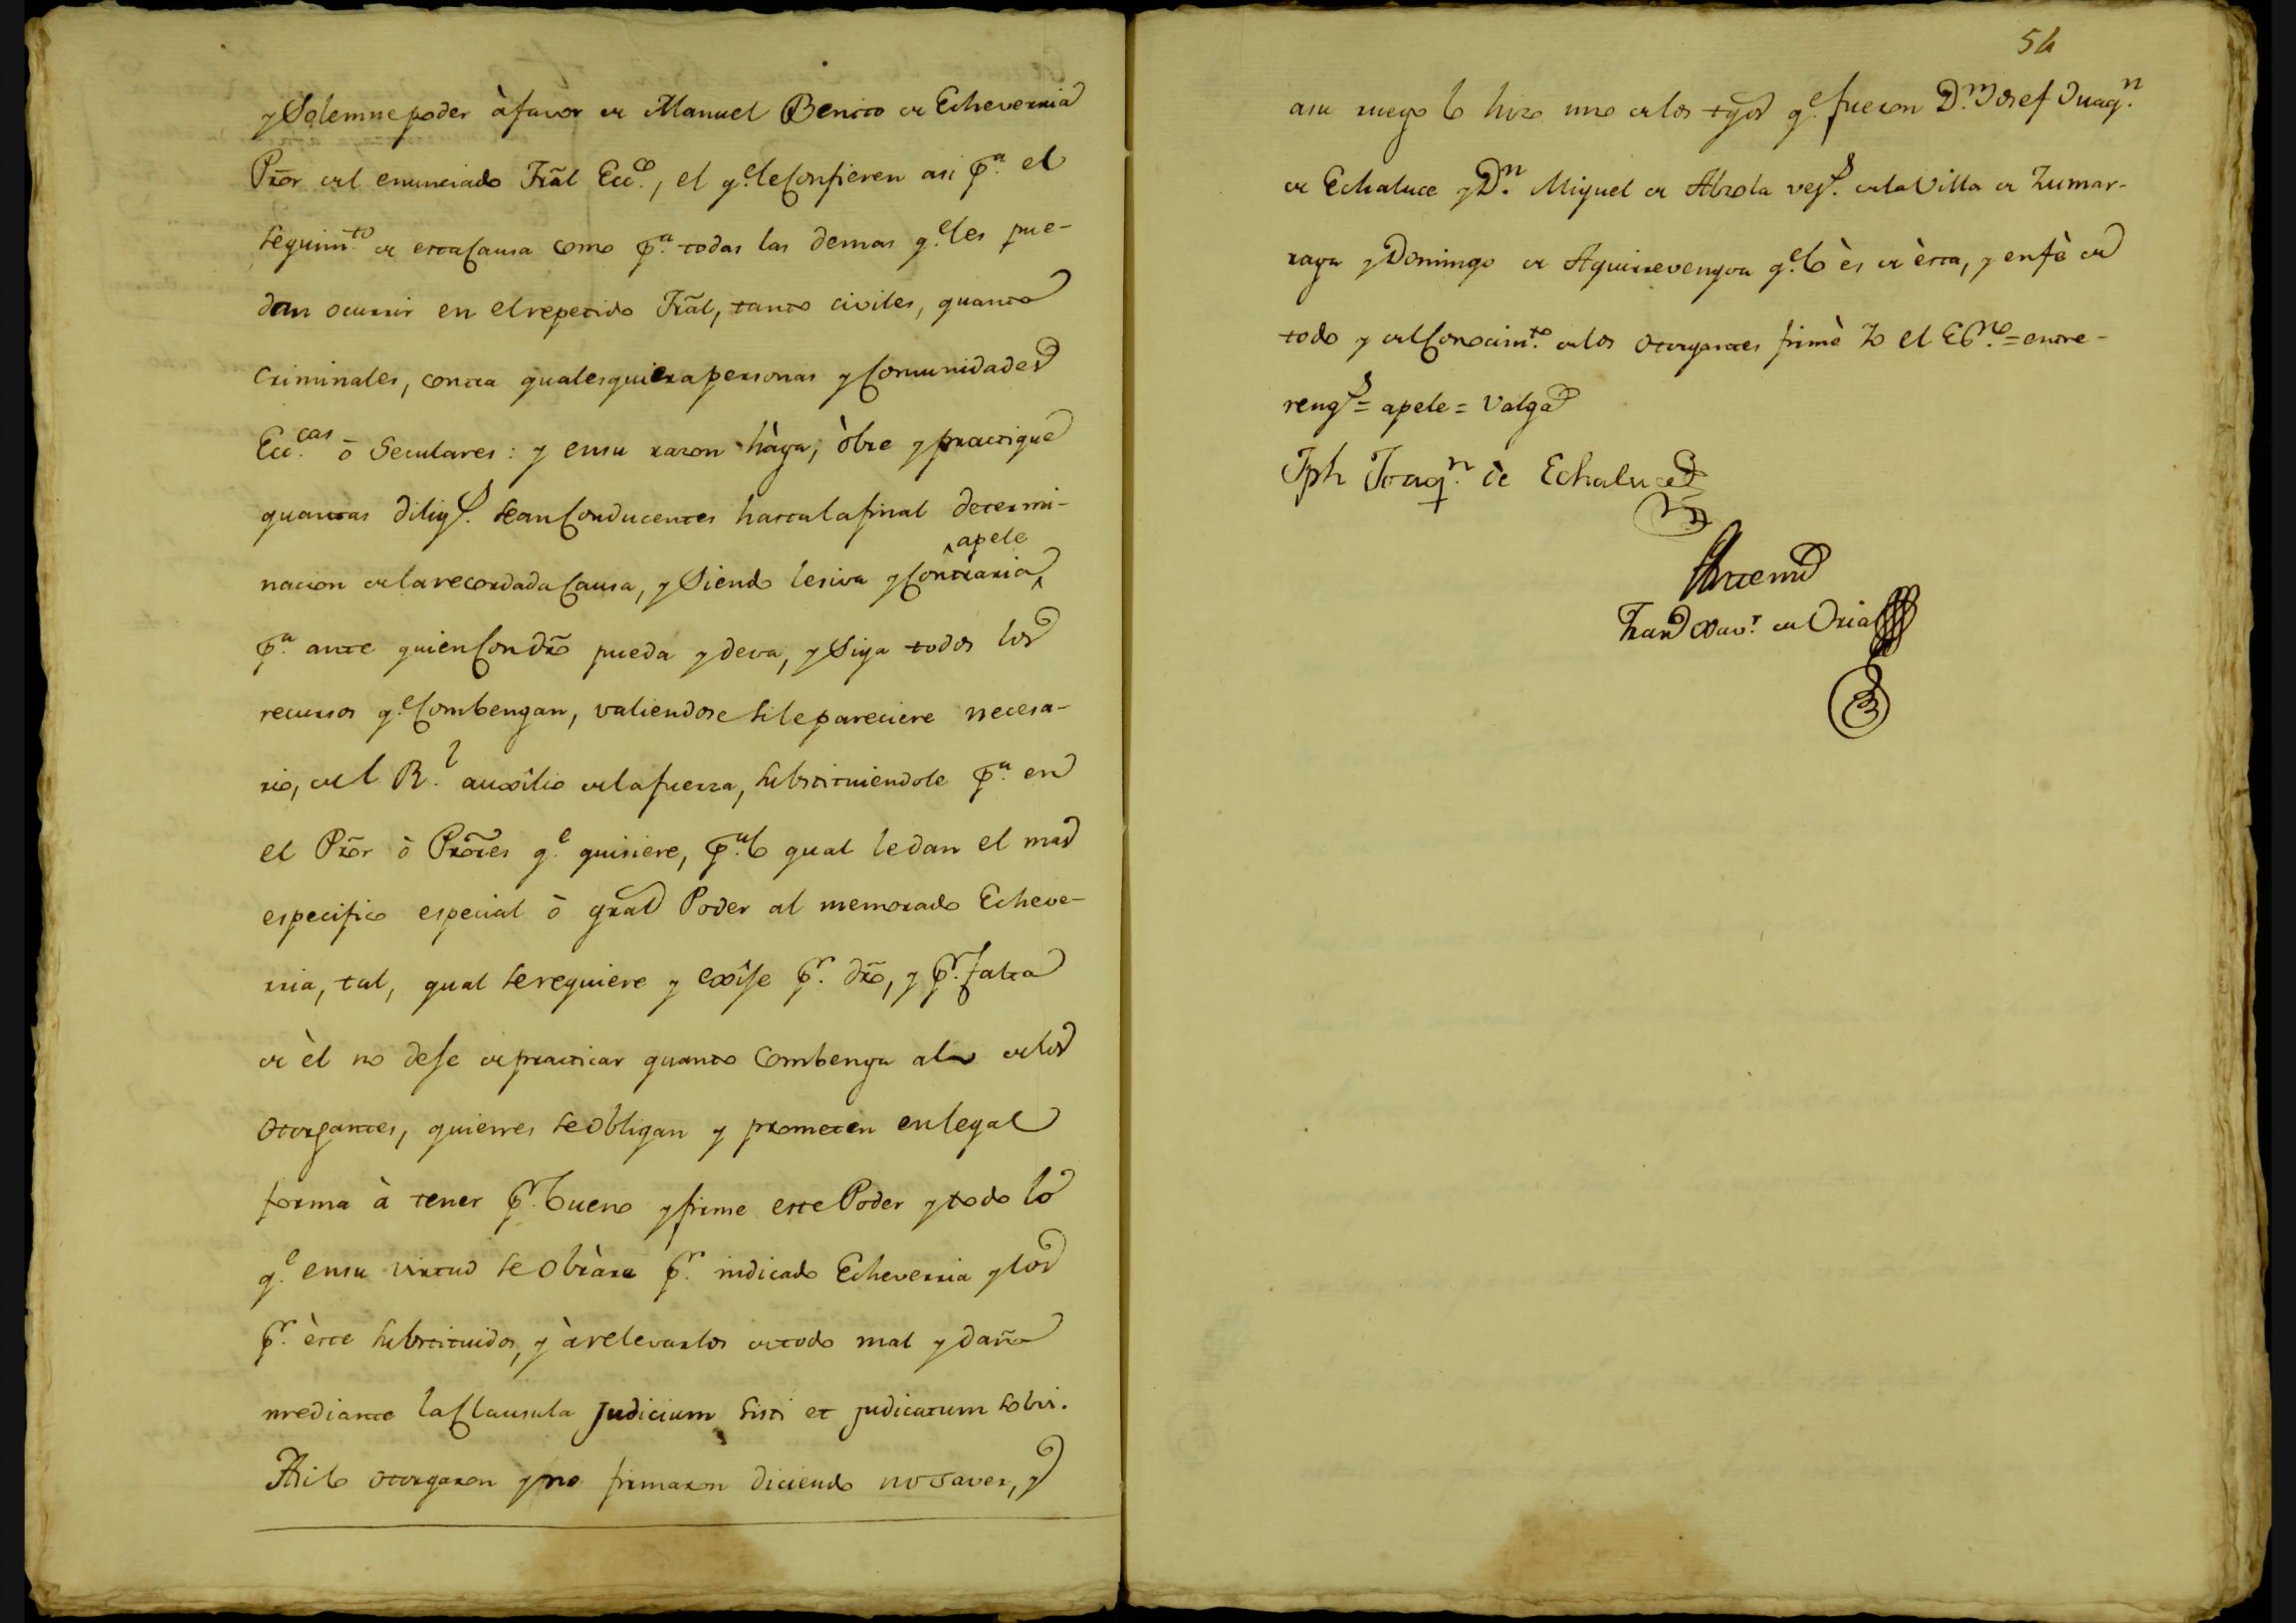 y Solemne poder à favor de Manuel Benito de Echeverria
Pror̃ del enunciado Trãl Ecc.co, el q.e le Confieren asi p.a el
seguim.to de esta Causa como p.a todas las demas q.e les pue-
dan ocurrir en el repetido Trãl, tanto civiles, quanto
criminales, contra qualesquiera personas y Comunidades
Ecc.cas ô Seculares: y en su razon hàga, òbre y practique
quantas dilig.s sean Conducentes hasta la final determi-
apele
nacion de la recordada Causa, y Siendo lesiva y Contraria
p.a ante quien Con dr̃o pueda y deva, y Siga todos los
recursos q.e Combengan, valiendose si le pareciere necesa-
rio, del R.l auxîlio de la fuerza, substituiendole p.a en
el Pror̃ ò Prorẽs q.e quisiere, p.a lo qual le dan el mas
especifico especial ô gral Poder al memorado Echeve-
rria, tal, qual se requiere y exîje p.r dr̃o, y p.r falta
de èl no deje de practicar quanto Combenga a lo de los
Otorgantes, quienes se obligan y prometen en legal
forma à tener p.r bueno y firme este Poder y todo lo
q.e en su virtud se obràre p.r indicado Echeverria y los
p.r èste substituidos, y à relevarlos de todo mal y daño
mediante la Clausula Judicium sisti et judicatum solvi.
Asi lo otorgaron y no firmaron diciendo no saver, y
54
a su ruego lo hizo uno de los tgos q.e fueron D.n Josef Juaq.n
de Echaluce y D.n Miguel de Abzola vej.s de la Villa de Zumar-
raga y Domingo de Aguirrevengoa q.e lo ès de èsta, y en fè de
todo y del Conocim.to de los otorgantes firmè Yo el Es.no = entre-
reng.s = apele = Valga
Jph Joaq.n de Echaluce
Ante mi
Fran.co Xav.r de Oria